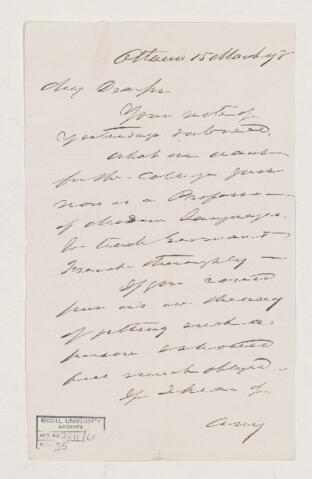 Ottawa 15 March 78
My Dear Sir
Your note of
yesterday received.
What we want
for the college just
now is a Professor
of Modern Languages.
to teach German &
French thoroughly —
If you could
put us in the way
of getting such a
person I should
feel much obliged —
If I hear of
any
McGILL UNIVERSITY
ARCHIVES
ACC. NO. 2211/60
REF. 35